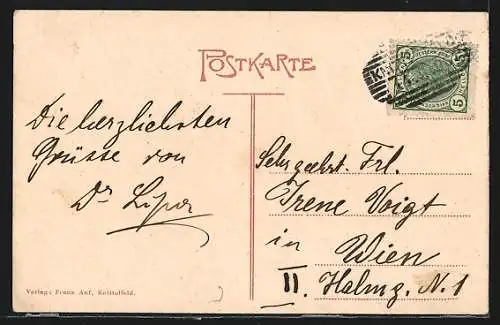 POSTKARTE
5 5
5 5
Die herzlichsten
Grüsse von
Dr
Sehr geehrt. Frl.
Irene Voigt
in Wien
II. Halmg. N. 1
Verlag: Franz Auf, Knittelfeld.